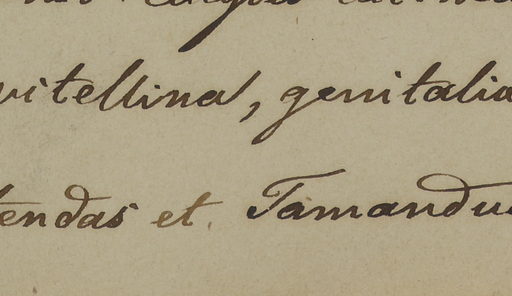 vitellina, genitalia
tendas et Tamandu